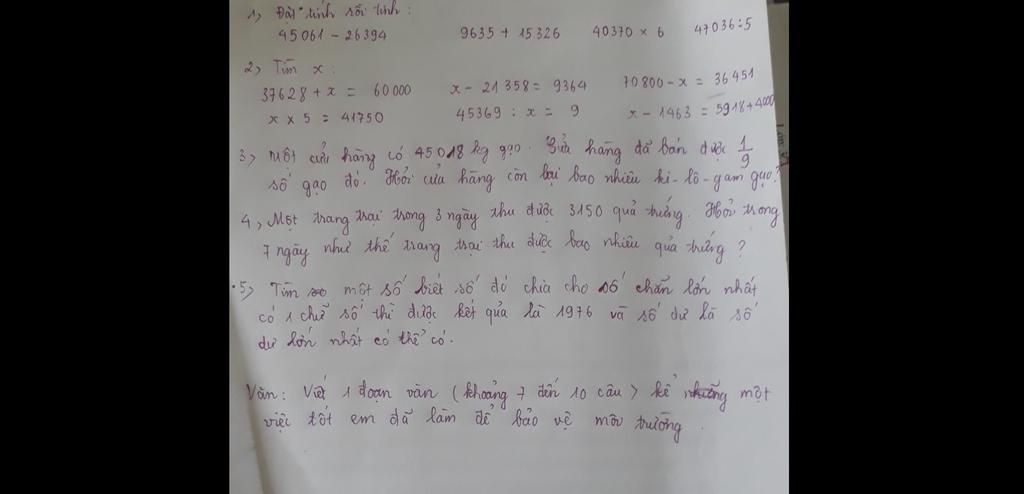 1, Đặt tính rồi tính :
45061 - 26394 9635 + 15326 40370 × 6 47036 : 5
2, Tìm x :
37628 + x = 60000 x - 21358 = 9364 70800 - x = 36451
x × 5 = 41750 45369 : x = 9 x - 1463 = 5918 + 4000
3, Một cửa hàng có 45018 kg gạo. Cửa hàng đã bán được 1/9
số gạo đó. Hỏi cửa hàng còn lại bao nhiêu ki-lô-gam gạo?
4, Một trang trại trong 3 ngày thu được 3150 quả trứng. Hỏi trong
7 ngày như thế trang trại thu được bao nhiêu quả trứng ?
5, Tìm một số biết số đó chia cho số chẵn lớn nhất
có 1 chữ số thì được kết quả là 1976 và số dư là số
dư lớn nhất có thể có.
Văn: Viết 1 đoạn văn (khoảng 7 đến 10 câu) kể một
việc tốt em đã làm để bảo vệ môi trường.